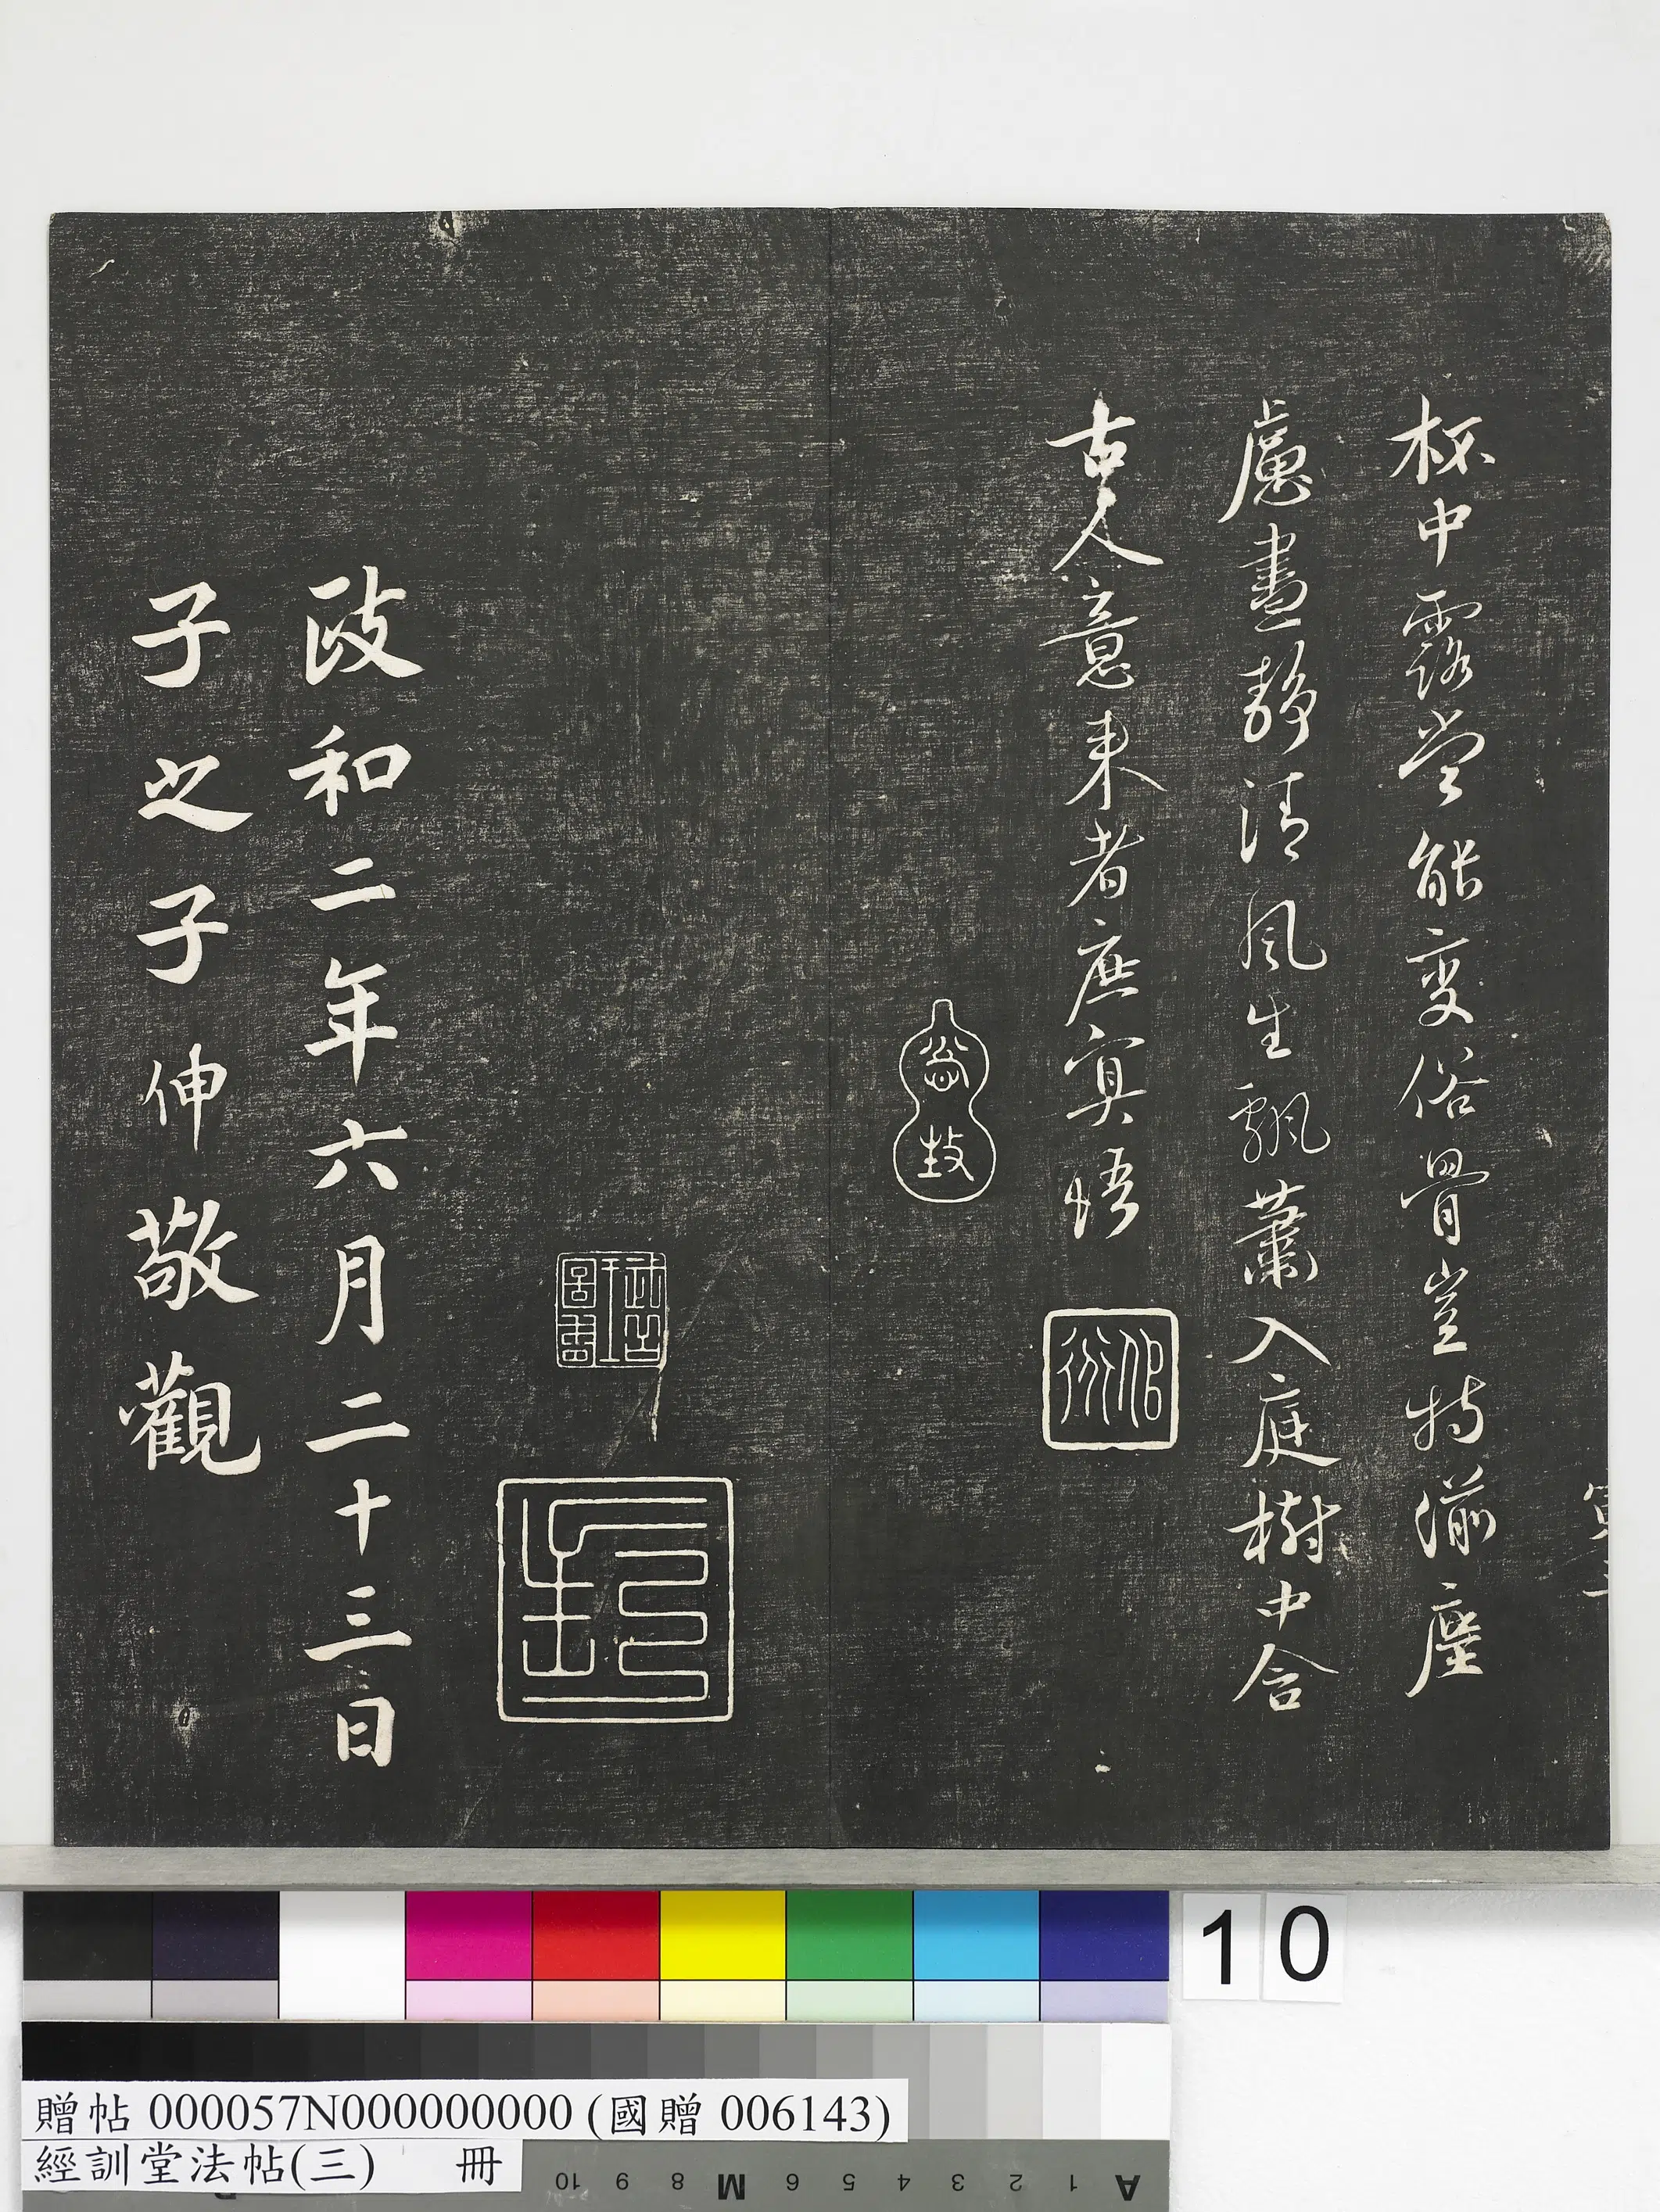 杯中露豈能變俗骨豈特湔塵
慮晝靜清風生飄蕭入庭樹中含
古人意來者庶冥悟
政和二年六月二十三日
子之子伸敬觀
10
贈帖 000057N000000000 (國贈 006143)
經訓堂法帖(三) 冊
10 9 8 M 6 5 4 3 2 1 A